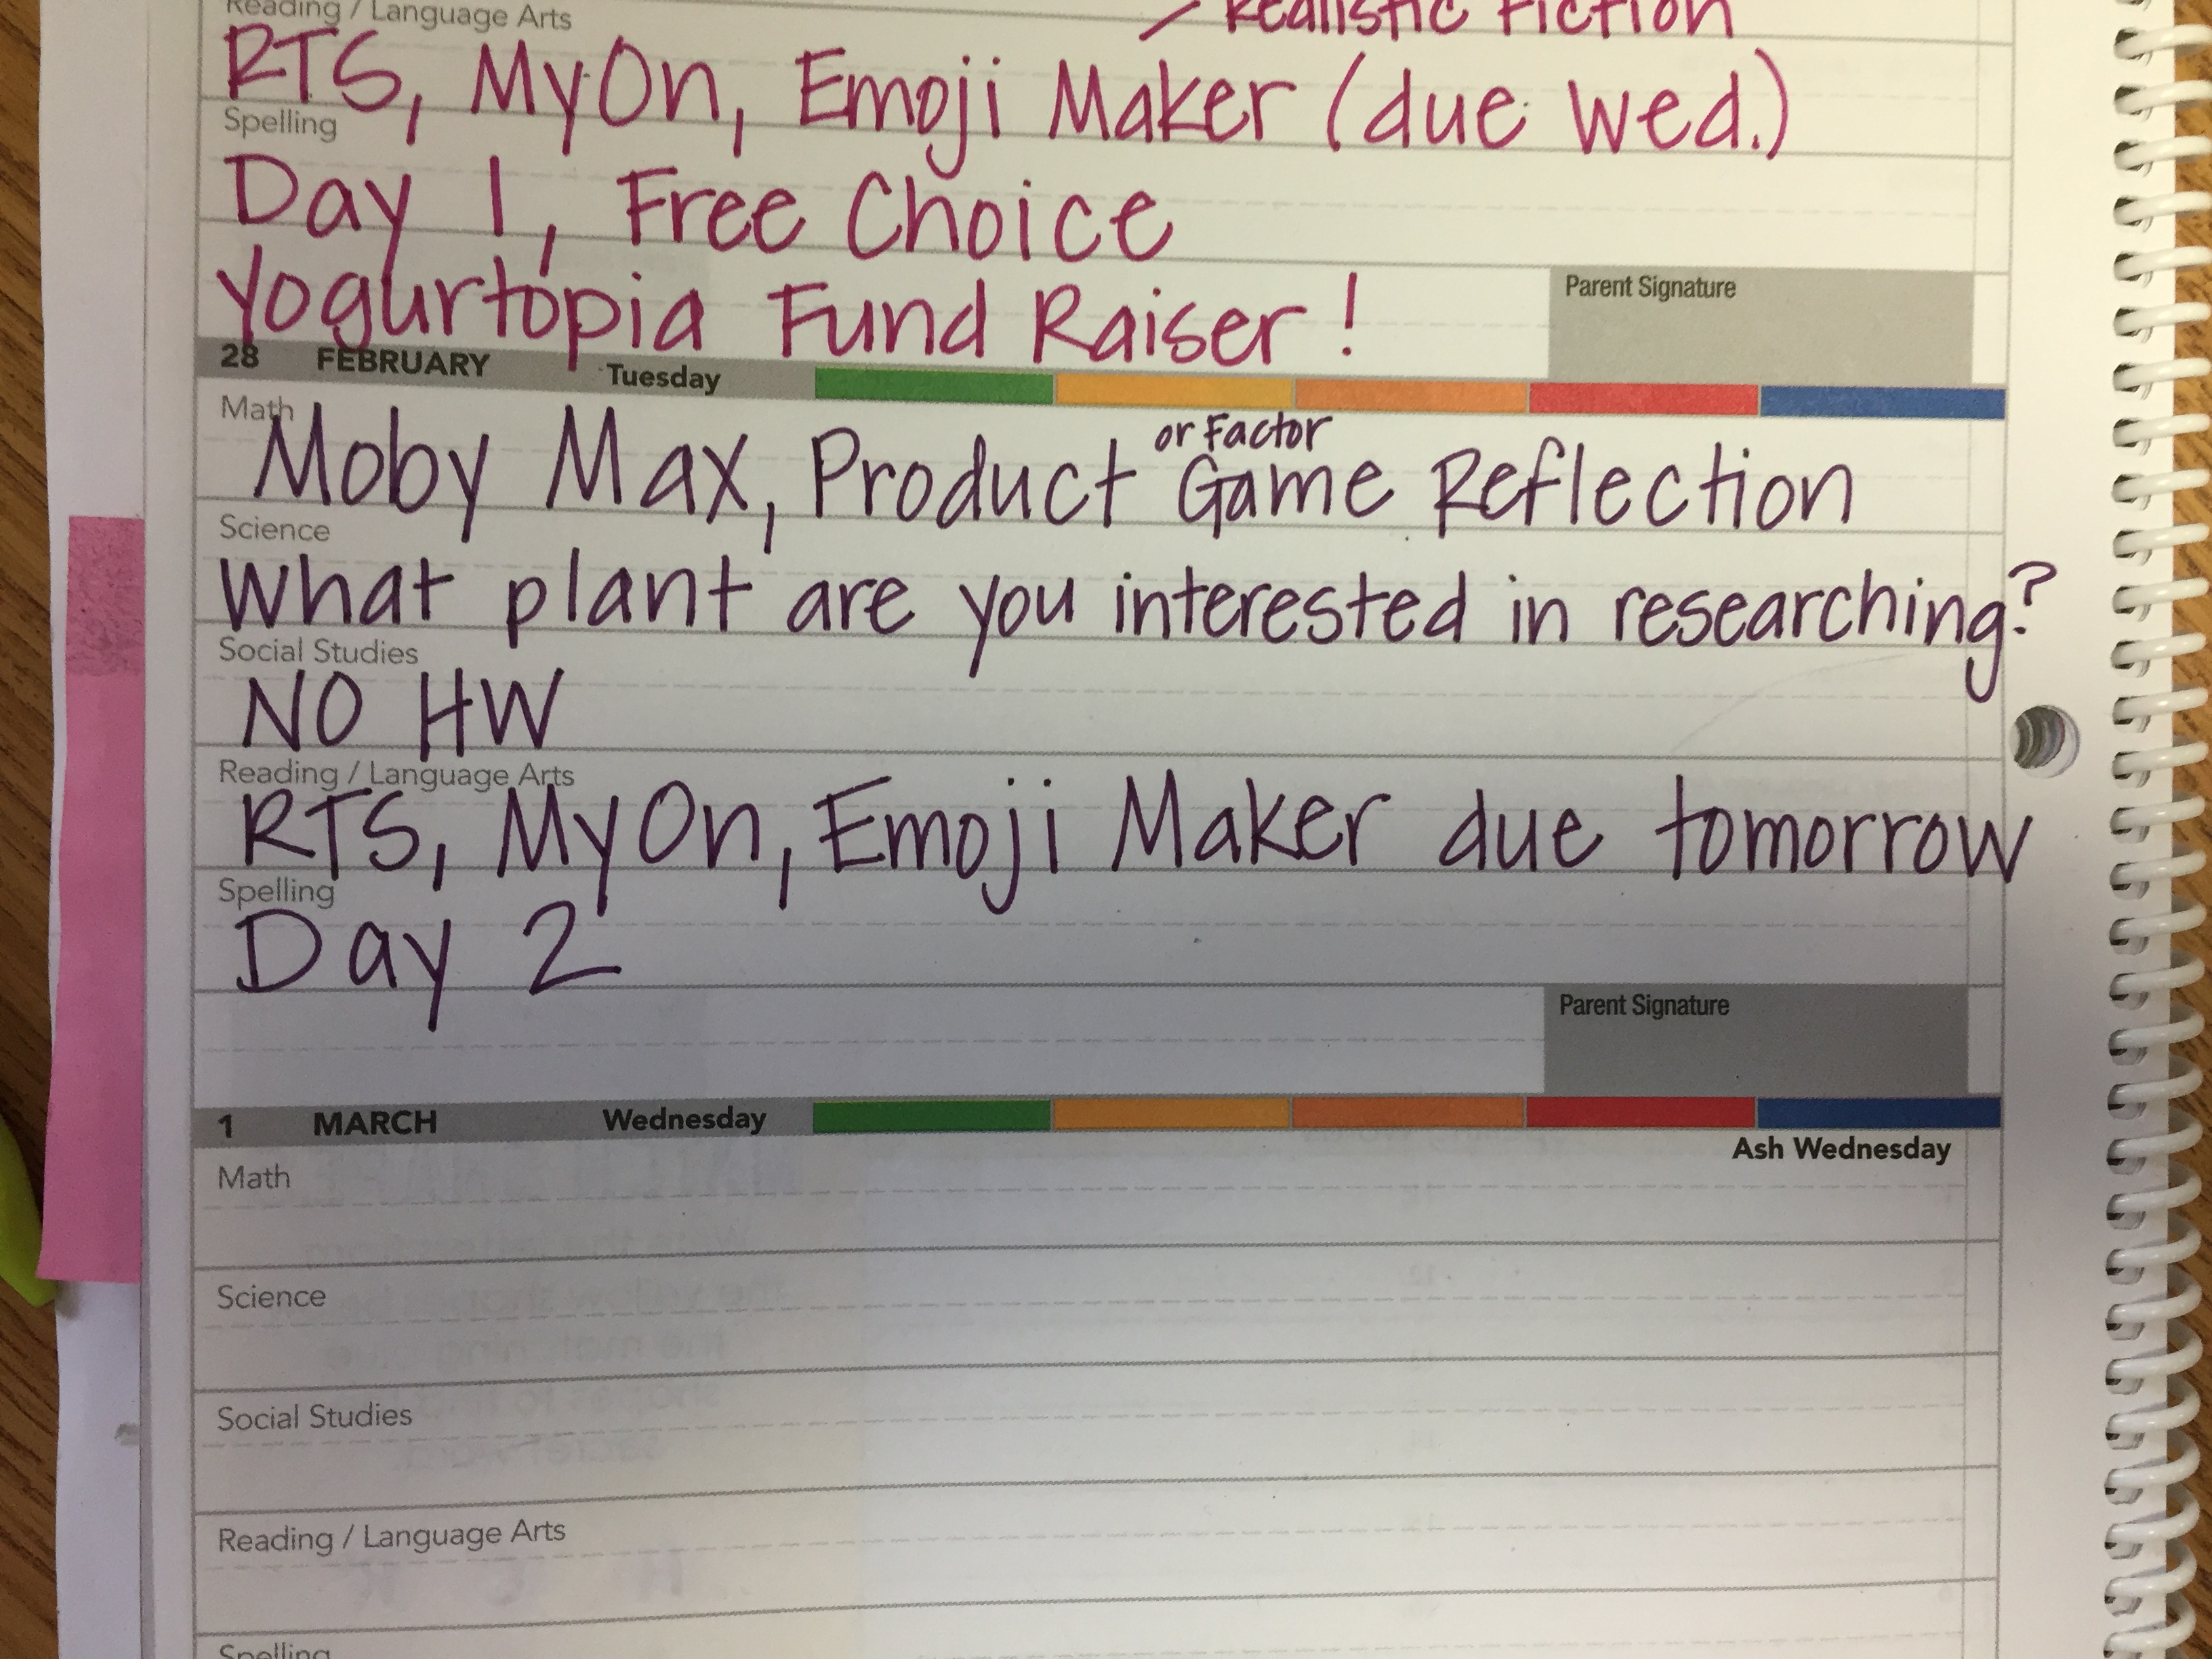 Reading / Language Arts
Realistic Fiction
RTS, MyOn, Emoji Maker (due wed.)
Spelling
Day 1, Free Choice
Yogurtopia Fund Raiser!
Parent Signature
28 FEBRUARY Tuesday
Math
or Factor
Moby Max, Product Game Reflection
Science
What plant are you interested in researching?
Social Studies
NO HW
Reading / Language Arts
RTS, MyOn, Emoji Maker due tomorrow
Spelling
Day 2
Parent Signature
1 MARCH Wednesday
Ash Wednesday
Math
Science
Social Studies
Reading / Language Arts
Spelling